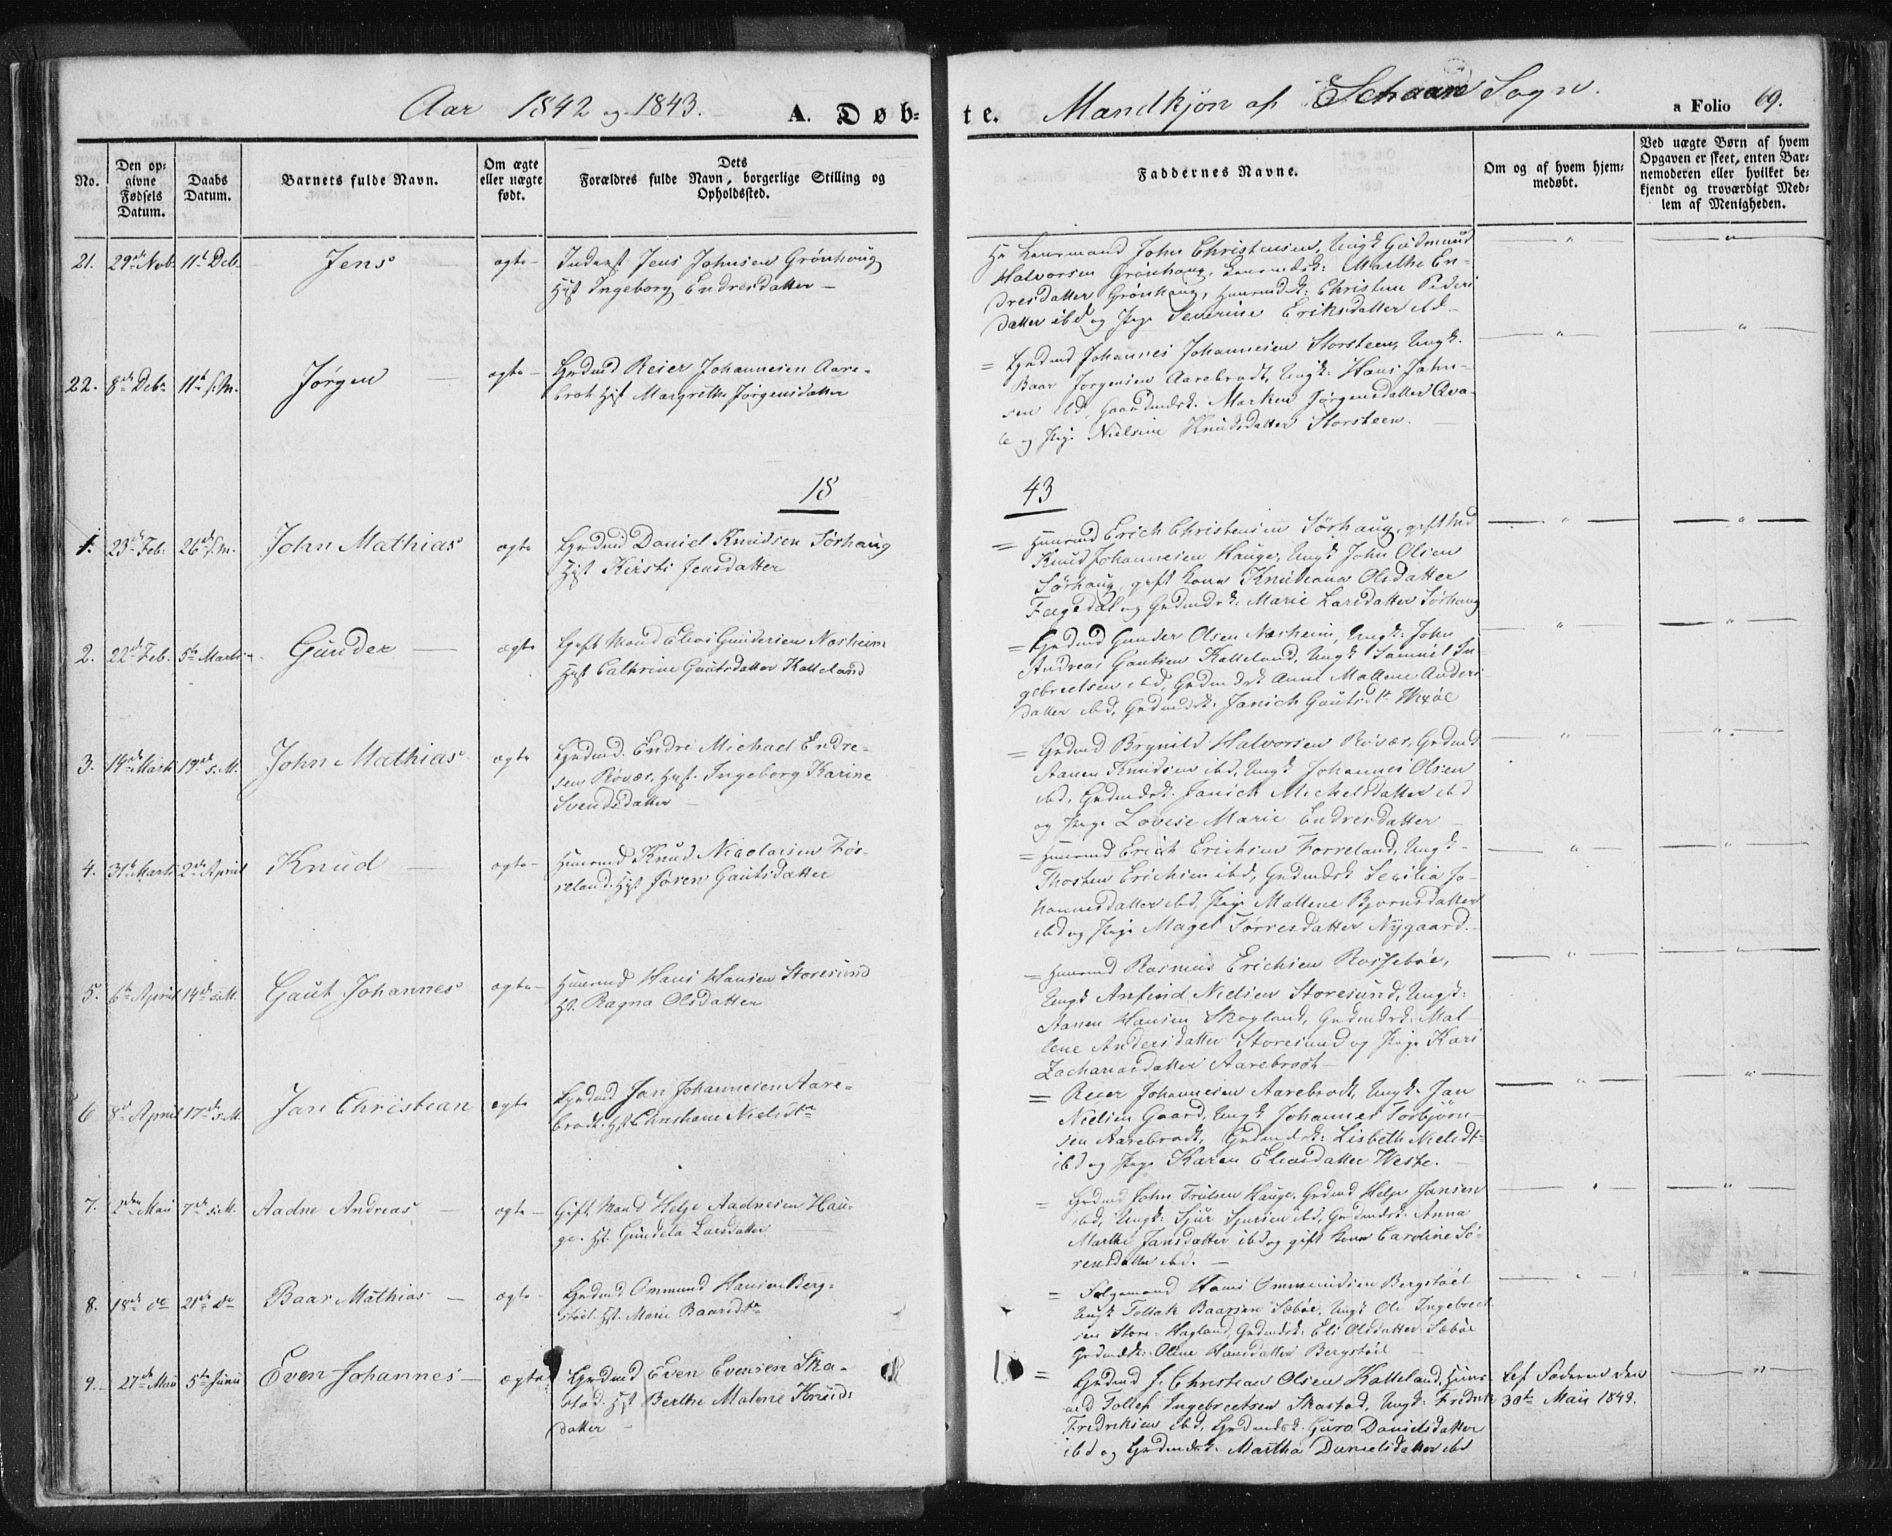 Aar 1842 og 1843. A. Døb-
te. Mandkjøn af Schaare Sogn. a Folio 69.
No.
Den op-
givne
Fødsels
Datum.
Daabs
Datum.
Barnets fulde Navn.
Om ægte
eller uægte
født.
Dets
Forældres fulde Navn, borgerlige Stilling og
Opholdssted.
Faddernes Navne.
Om og af hvem hjem-
medøbt.
Ved uægte Børn af hvem
Opgaven er skeet, enten Bar-
nemoderen eller hvilket be-
kjendt og troværdigt Med-
lem af Menigheden.
21. 29de Nob. 11te Deb. Jens ægte
Inderst Jens Johnsen Grönhoug
Hust Ingeborg Endresdatter
John Christensen, Ungk Gudmund
Halvorsen Grönhoug, Marthe En-
dresdatter Grönhoug, Christine Peders
datter ibd og Pige Severine Eriksdatter ibd
22. 8de Debr 11te s.M. Jørgen ægte
Grdmd Reier Johannesen Aare-
brot Hust Margrethe Jörgensdatter
Grdmd Johannes Johannesen Storsteen, Ungk.
Baar Jörgensen Aarebrodt, Ungk: Hans John-
sen ibd, Gaardmdsk. Marken Jörgensdatter Qva-
le og Pige Nielsine Knudsdatter Storsteen.
18 43
1. 23de Feb. 26de s.M. John Mathias ægte
Grdmd Daniel Knudsen Sörhaug
Hust Kirsti Jensdatter
Huusmd Erich Christensen Sörhaug, gift Md
Knud Johannesen Hauge, Ungk John Olsen
Sörhaug, gift Kone Knudiane Olsdatter
Fagedal og Grdmdsk: Marie Larsdatter Sörhaug
2. 22de Feb. 5te Marts Gunder ægte
Gift Mand Elias Gundersen Nesheim
Hust Cathrine Gautsdatter Kalleland
Grdmd Gunder Olsen Nesheim, Ungk. John
Andreas Gautsen Kalleland, Ungk Samuel In-
gebretsen ibd, Grdmdsk Anne Mallene Anders
datter ibd, Grdmdsk. Janich Gautsdtr
3. 14de Marts 19de s.M. John Mathias ægte
Grdmd. Endre Michael Endre-
sen Rövær, Hust. Ingeborg Karine
Svendsdatter
Grdmd Brynild Halvorsen Rövær, Grdmd
Aanen Knudsen ibd, Ungk Johannes Olsen
ibd, Grdmdsk. Janich Michelsdatter ibd
og Pige Lovise Marie Endresdatter
4. 31te Marts 2den April Knud ægte
Huusmd Knud Nicolaisen For-
reland. Hust Sören Gautsdatter
Huusmd Erich Erichsen Forreland, Ungk
Thosten Erichsen ibd, Grdmdsk Secilia Jo-
hannesdatter ibd, Pige Mallene Bjornsdatter
ibd og Pige Magel Törresdatter Nygaard.
5. 6te April 14de s.M. Gaut Johannes ægte
Huusmd Hans Hansen Storesund
Ht. Ragna Olsdatter
Huusmd Rasmus Erichsen Rossebøe,
Ungk Anfind Nielsen Storesund, Ungk:
Aanen Hansen Skogland, Grdmdsk: Mal-
lene Andersdatter Storesund og Pige Kari
Zachariasdatter Aarebrodt
6 8de April 17de s.M. Jan Christian ægte
Grdmd Jan Johannesen Aare-
brodt. Hst Christiane Nielsdtr
Reier Johannesen Aarebrodt, Ungk. Jan
Nielsen Gaard, Ungk Johannes Torbjörn-
sen Aarebrodt, Grdmdsk: Lisbeth Nielsdtr
ibd og Pige Karen Eliasdatter Weste.
7. Maii 7de s.M. Aadne Andreas ægte
Gift Mand Helge Aadnesen Hau-
ge. Ht. Gundela Larsdatter
Grdmd John Trulsen Hauge, Grdmd Helge Jansen
ibd, Ungk: Sjur Sjursen ibd, Grdmdsk: Anna
Marthe Jansdatter ibd og gift Kone Caroline Sö-
rensdatter ibd.
8. 18de do 21de do Baar Mathias ægte
Grdmd Ommund Hansen Berg-
stöel. Ht. Marie Baarsdtr
Hans Ommundsen Bergstöel
Ungk Tollak Baarsen Sæböe, Ungk Ole Ingebret-
sen Store-Hagland, Grdmdsk: Eli Olsdatter Sæböe
Grdmdsk: Oline Hansdatter Bergstöel
9. 27de Maii 5te Junii Even Johannes ægte
Grdmd Even Evensen Ska-
stad. Hst Berthe Malene Knuds-
datter
Grdmd J. Christian Olsen Kalleland, Huus-
md Tollef Ingebretsen Skastad, Ungk: Fredrik
Fredriksen ibd, Grdmdsk. Guro Danielsdatter
ibd og Grdmdsk: Martha Danielsdatter ibd
af Faderen den
30te Maii 1843.